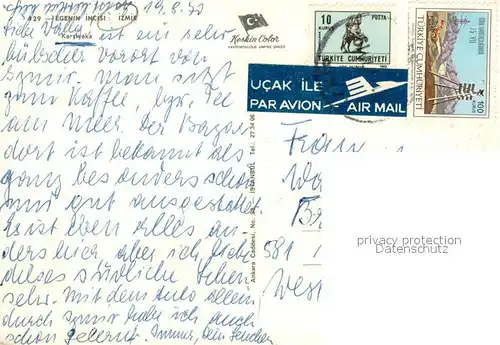 19.8.73
429 EGENİN İNCİSİ: İZMİR
Karşıyaka
Keskin Color
10
KURUŞ
POSTA
TÜRKİYE CUMHURİYETİ
TÜRKİYE CUMHURİYETİ
100
UÇAK İLE
PAR AVION AIR MAIL
Liebe ist ein sehr
hübscher Vorort von
Izmir. Man sitzt
zum Kaffee, bzw. Tee
am Meer. Der Bazar
dort ist bekannt als
ganz besonders schön
und gut ausgestattet
Es ist eben alles an-
ders hier aber ich liebe
dieses südliche Leben
sehr. Mit dem Auto allein
durch Izmir habe ich auch
schon gelernt. Immer, Dein
Ankara Caddesi, No. İSTANBUL Tel.: 27 34 06
Frau
581
West
privacy protection
Datenschutz